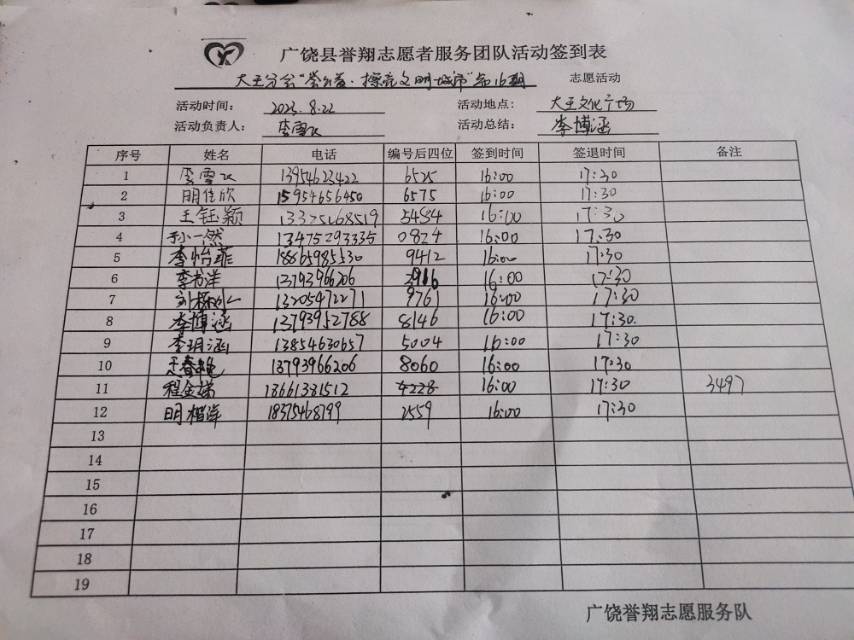 广饶县誉翔志愿者服务团队活动签到表
大王分会“ · 擦亮文明城市”第16期 志愿活动
活动时间： 2023.8.22 活动地点： 大王文化广场
活动负责人： 李雪 活动总结： 李博涵
序号 姓名 电话 编号后四位 签到时间 签退时间 备注
1 李雪 13954623422 6525 16:00 17:30
2 明佳欣 15954656450 6575 16:00 17:30
3 王钰颖 13375268519 5484 16:00 17:30
4 孙一然 13475293335 0824 16:00 17:30
5 李怡菲 18865985530 9412 16:00 17:30
6 李 洋 13793966206 3916 16:00 17:30
7 刘 13205472271 9761 16:00 17:30
8 李博涵 13793952788 8146 16:00 17:30
9 李玥涵 13854630657 5004 16:00 17:30
10 王春艳 13793966206 8060 16:00 17:30
11 程金娣 18661381512 4228 16:00 17:30 3497
12 明 18375468799 2559 16:00 17:30
13
14
15
16
17
18
19
广饶誉翔志愿服务队